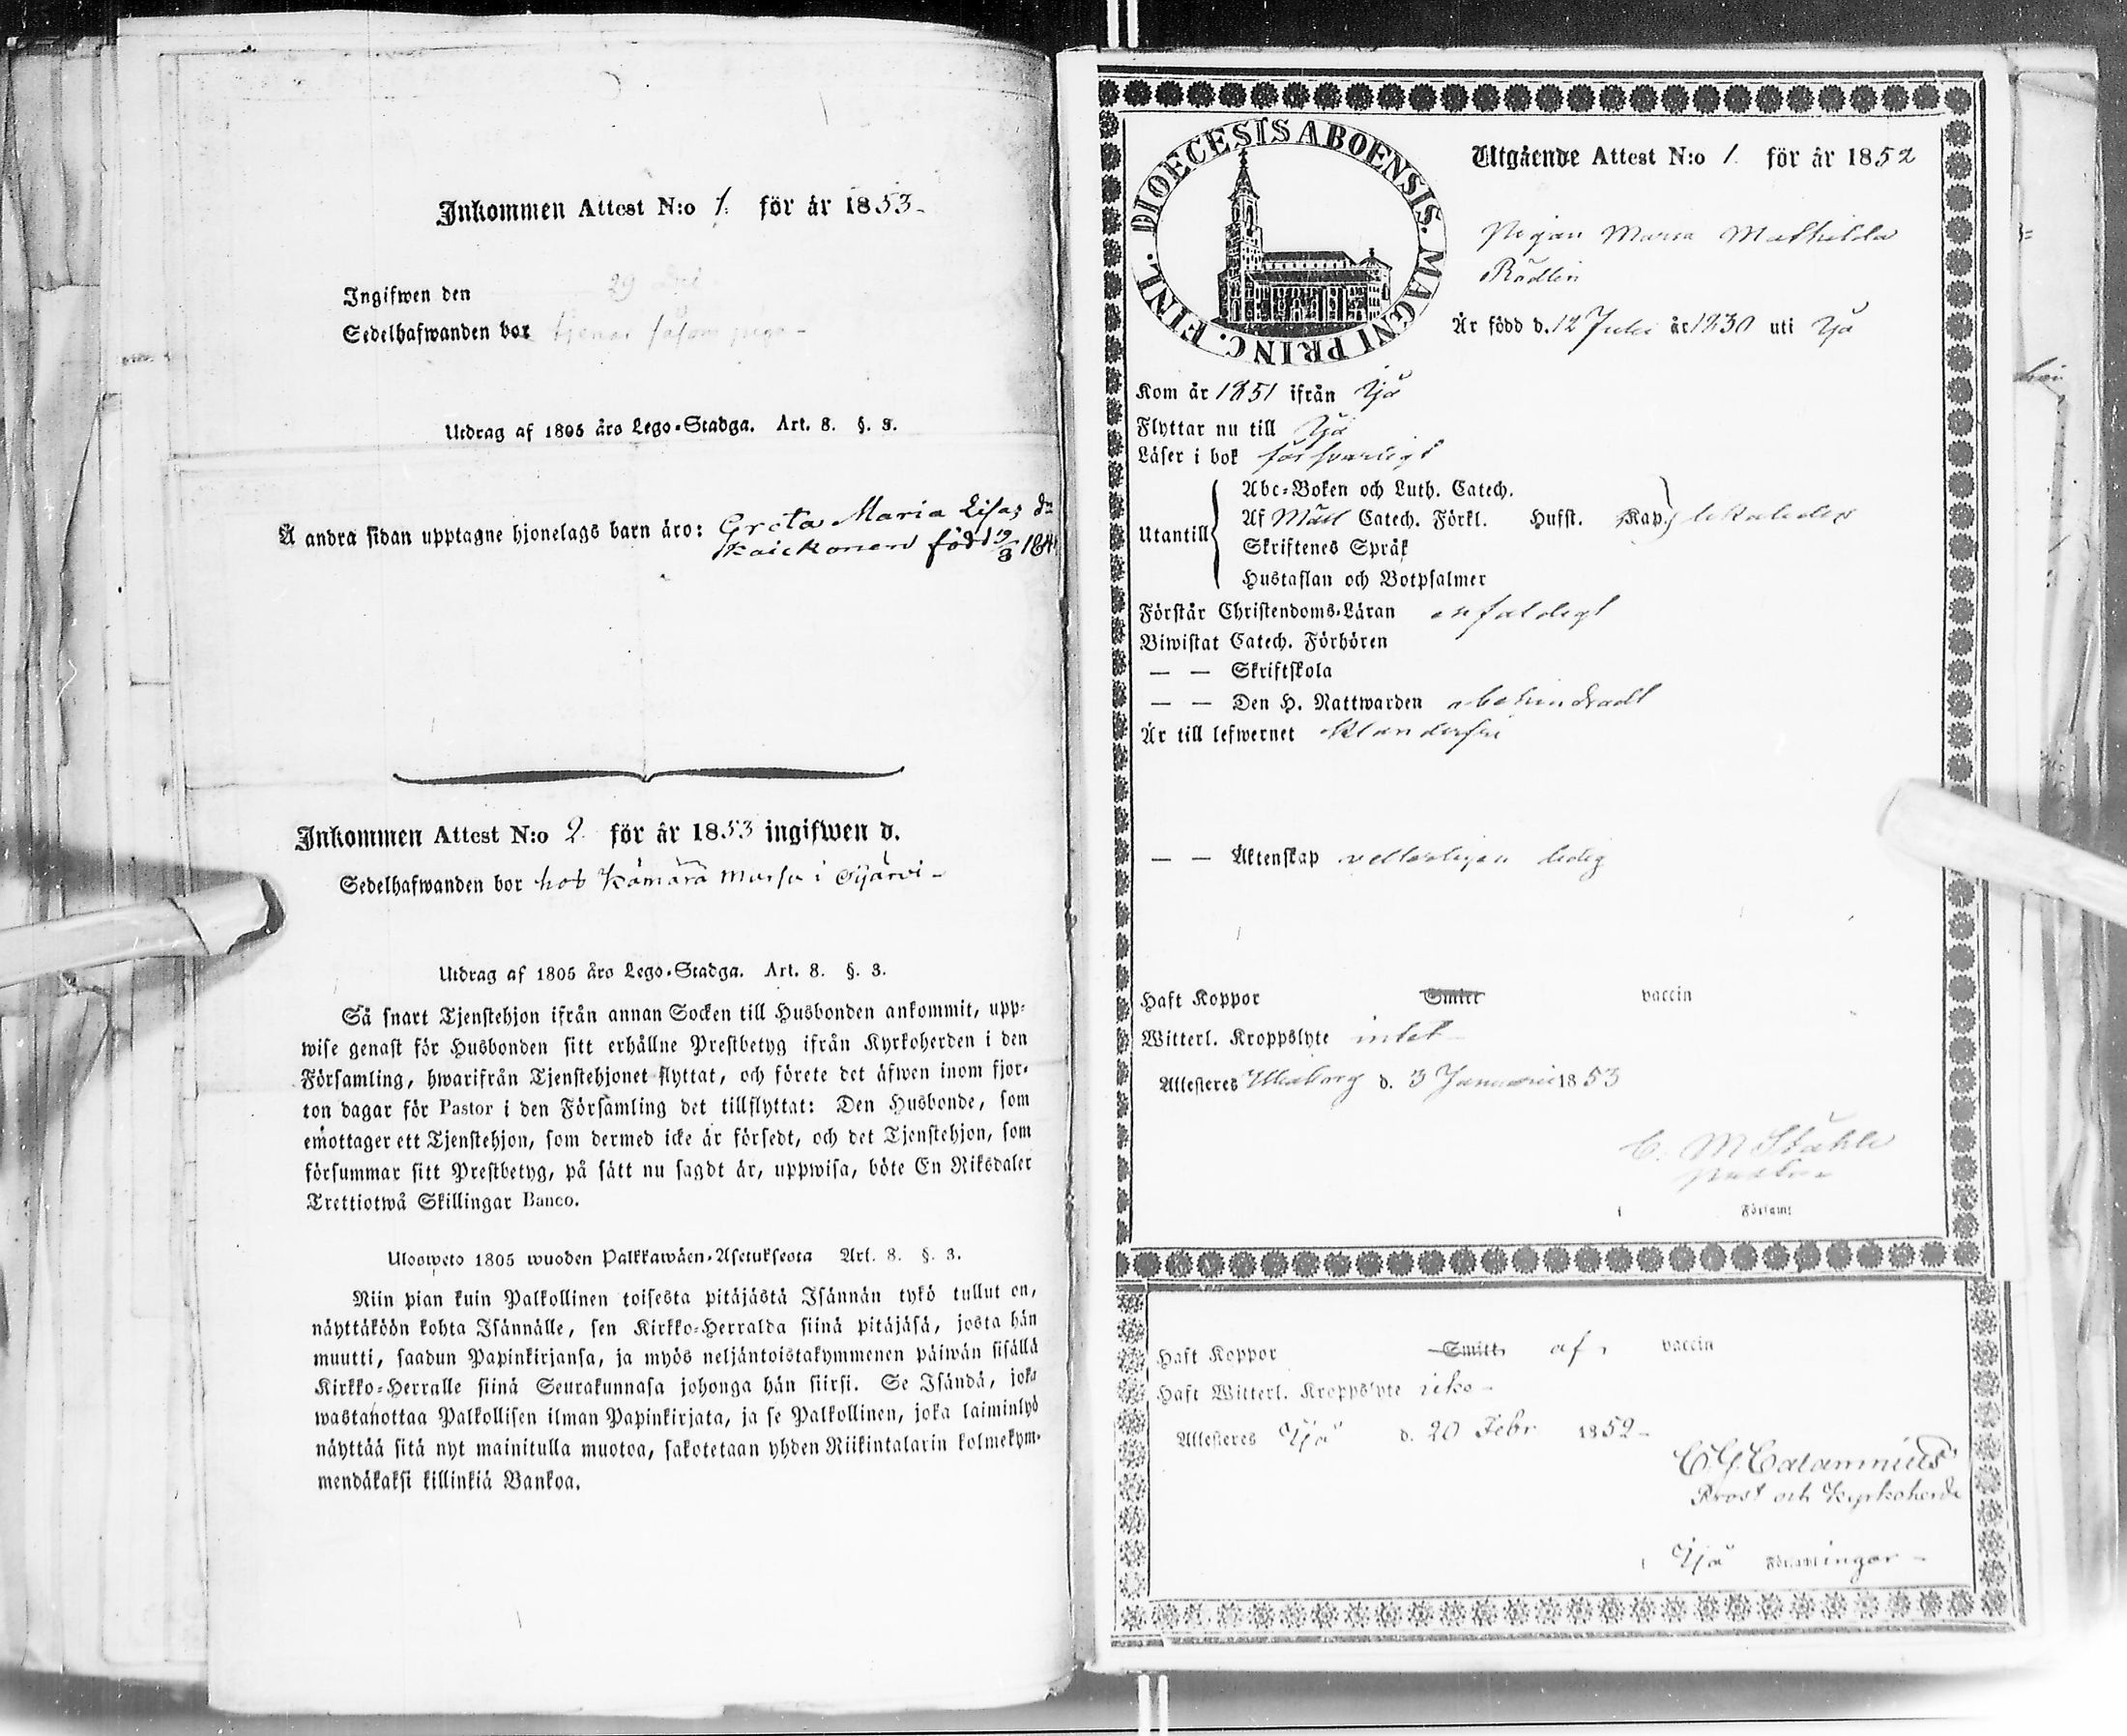 Inkommen Attest N:o 1. för år 1853-
Ingifwen den 29
Sedelhafwanden bor tjenar såsom piga -
Utdrag af 1805 års Lego-Stadga. Art. 8. §. 3.
Å andra sidan upptagne hjonelags barn äro: Greta Maria Lisas dr
Kaickonen född 19/3 184
Inkommen Attest N:o 2 för år 1853 ingifwen d.
Sedelhafwanden bor hos Kämärä i Ojärvi -
Utdrag af 1805 års Lego-Stadga. Art. 8. §. 3.
Så snart Tjenstehjon ifrån annan Socken till Husbonden ankommit, upp-
wise genast för Husbonden sitt erhållne Prestbetyg ifrån Kyrkoherden i den
Församling, hwarifrån Tjenstehjonet flyttat, och förete det äfwen inom fjor-
ton dagar för Pastor i den Församling det tillflyttat: Den Husbonde, som
emottager ett Tjenstehjon, som dermed icke är försedt, och det Tjenstehjon, som
försummar sitt Prestbetyg, på sätt nu sagdt är, uppwisa, böte En Riksdaler
Trettiotwå Skillingar Banco.
Ulosweto 1805 wuoden Palkkawäen-Asetuksesta Art. 8. §. 3.
Niin pian kuin Palkollinen toisesta pitäjästä Isännän tykö tullut on,
näyttäköön kohta Isännälle, sen Kirkko-Herralda siinä pitäjäsä, josta hän
muutti, saadun Papinkirjansa, ja myös neljäntoistakymmenen päiwän sisällä
Kirkko-Herralle siinä Seurakunnasa johonga hän siirsi. Se Isändä, joka
wastanottaa Palkollisen ilman Papinkirjata, ja se Palkollinen, joka laiminlyö
näyttää sitä nyt mainitulla muotoa, sakotetaan yhden Riikintalarin kolmekym-
mendäkaksi killinkiä Bankoa.
DIOECESIS ABOENSIS. MAGNI PRINC. FINL.
Utgående Attest N:o 1. för år 1852
Pigan Maria Mathilda
Rödlin
Är född d. 12 Julii år 1830 uti Ijå
Kom år 1851 ifrån Ijå
Flyttar nu till Ijå
Läser i bok försvarligt
Utantill
Abc-Boken och Luth. Catech.
Af Catech. Förkl. Husst. Kap.
Skriftenes Språk
Hustaflan och Botpsalmer
Förstår Christendoms-Läran enfaldigt
Biwistat Catech. Förhören
— — Skriftskola
— — Den H. Nattwarden obehindradt
Är till lefwernet klanderfri
— — Äktenskap vetterligen ledig
Haft Koppor Smitt vaccin
Witterl. Kroppslyte intet
Attesteres Uleåborg d. 3 Januarii 1853
C. M Ståhle
pastor
i Församl
Haft Koppor Smitt af vaccin
Haft Witterl. Kroppslyte icke -
Attesteres Ijå d. 20 Febr 1852-
C. G. Calamnius
Prost och Kyrkoherde
i Ijå Församlingar -